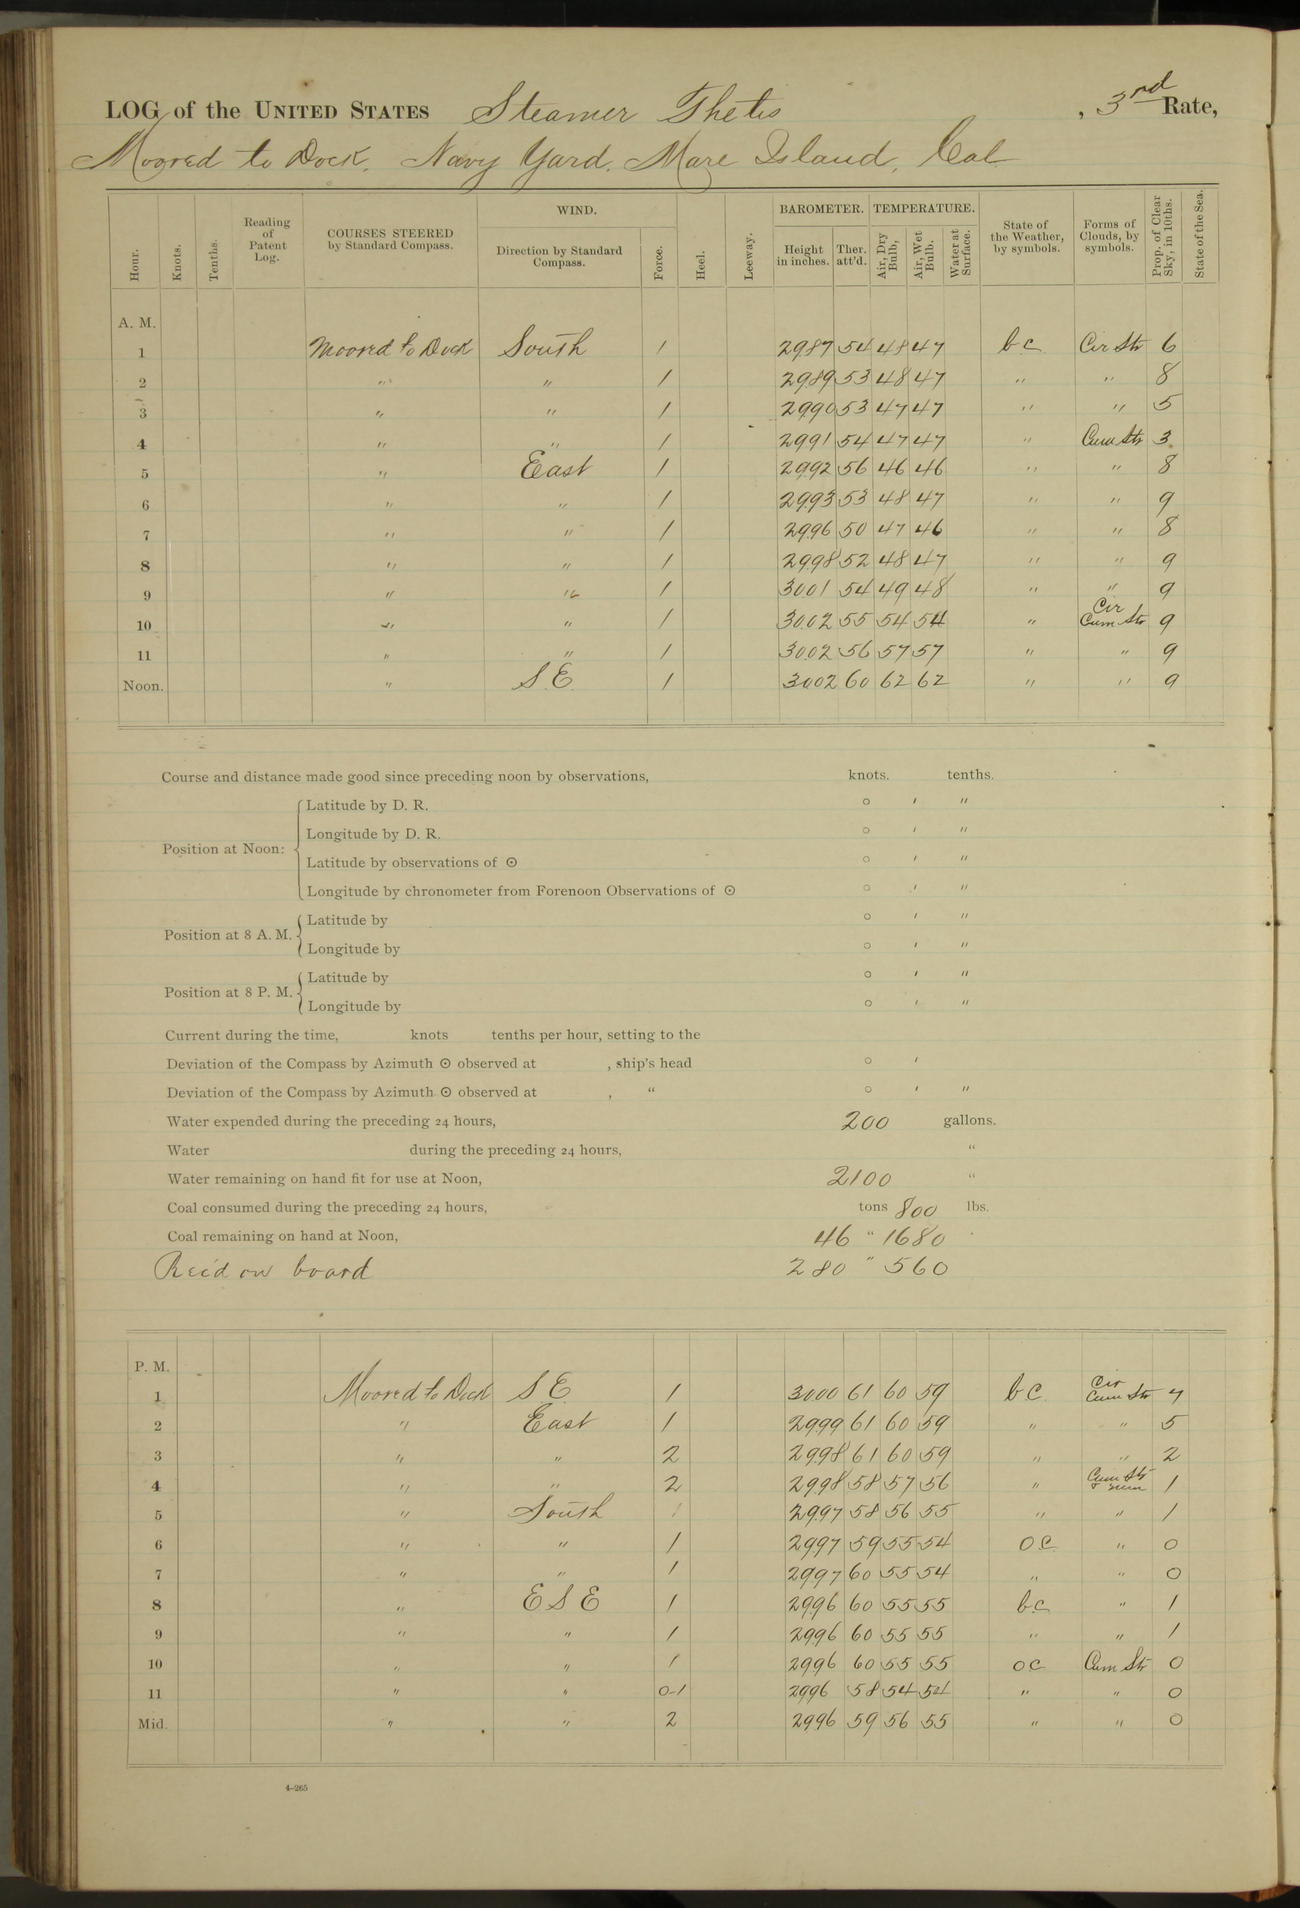 LOG of the UNITED STATES Steamer Thetis , 3rd Rate,
Moored to Dock. Navy Yard. Mare Island, Cal
Hour. Knots. Tenths. Reading of Patent Log. COURSES STEERED by Standard Compass. WIND. Direction by Standard Compass. Force. Heel. Leeway. BAROMETER. Height in inches. Ther. att'd. TEMPERATURE. Air, Dry Bulb, Air, Wet Bulb. Water at Surface. State of the Weather, by symbols. Forms of Clouds, by symbols. Prop. of Clear Sky, in 10ths. State of the Sea.
A. M.
1 Moored to Dock South 1 2987 54 48 47 bc Cir Str 6
2 " " 1 2989 53 48 47 " " 8
3 " " 1 2990 53 47 47 " " 5
4 " " 1 2991 54 47 47 " Cum Str 3
5 " East 1 2992 56 46 46 " " 8
6 " " 1 2993 53 48 47 " " 9
7 " " 1 2996 50 47 46 " " 8
8 " " 1 2998 52 48 47 " " 9
9 " " 1 3001 54 49 48 " " 9
10 " " 1 3002 55 54 54 " Cir Cum Str 9
11 " " 1 3002 56 57 57 " " 9
Noon. " S.E. 1 3002 60 62 62 " " 9
Course and distance made good since preceding noon by observations, knots. tenths.
Position at Noon:
Latitude by D. R. ° ' "
Longitude by D. R. ° ' "
Latitude by observations of ☉ ° ' "
Longitude by chronometer from Forenoon Observations of ☉ ° ' "
Position at 8 A. M.
Latitude by ° ' "
Longitude by ° ' "
Position at 8 P. M.
Latitude by ° ' "
Longitude by ° ' "
Current during the time, knots tenths per hour, setting to the
Deviation of the Compass by Azimuth ☉ observed at , ship's head ° '
Deviation of the Compass by Azimuth ☉ observed at , " ° ' "
Water expended during the preceding 24 hours, 200 gallons.
Water during the preceding 24 hours, "
Water remaining on hand fit for use at Noon, 2100 "
Coal consumed during the preceding 24 hours, tons 800 lbs.
Coal remaining on hand at Noon, 46 " 1680
Rec'd on board 280 " 560
P. M.
1 Moored to Dock S E 1 3000 61 60 59 bc Cir Cum Str 7
2 " East 1 2999 61 60 59 " " 5
3 " " 2 2998 61 60 59 " " 2
4 " " 2 2998 58 57 56 " Cum Str & num 1
5 " South 1 2997 58 56 55 " " 1
6 " " 1 2997 59 55 54 OC " 0
7 " " 1 2997 60 55 54 " " 0
8 " ESE 1 2996 60 55 55 bc " 1
9 " " 1 2996 60 55 55 " " 1
10 " " 1 2996 60 55 55 oc Cum Str 0
11 " " 0-1 2996 58 54 54 " " 0
Mid. " " 2 2996 59 56 55 " " 0
4-265